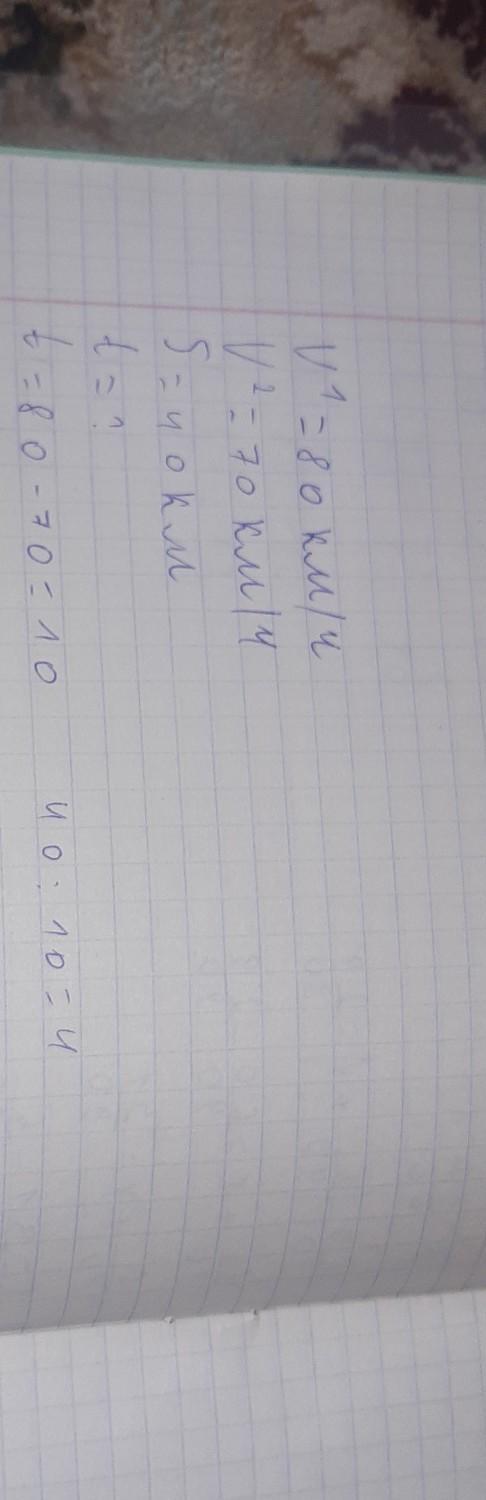 V¹ = 80 км/ч
V² = 70 км/ч
S = 40 км
t = ?
t = 80 - 70 = 10 40 : 10 = 4